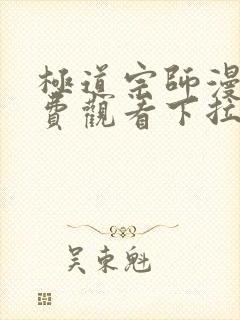 極道宗師漫
費觀看下拉
吴東魁